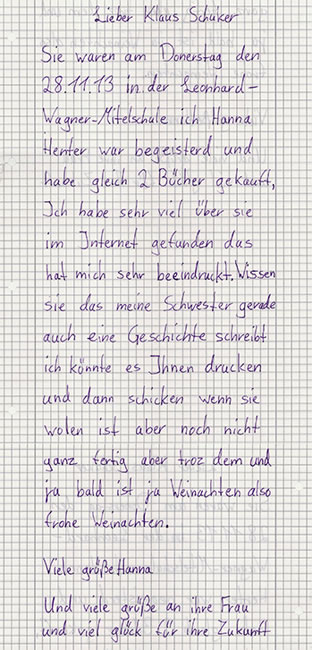 Lieber Klaus Schuker
Sie waren am Donerstag den
28.11.13 in der Leonhard-
Wagner-Mitelschule ich Hanna
Henter war begeisterd und
habe gleich 2 Bücher gekauft,
Ich habe sehr viel über sie
im Internet gefunden das
hat mich sehr beeindruckt. Wissen
sie das meine Schwester gerade
auch eine Geschichte schreibt
ich könnte es Ihnen drucken
und dann schicken wenn sie
wolen ist aber noch nicht
ganz fertig aber troz dem und
ja bald ist ja Weinachten also
frohe Weinachten.
Viele größe Hanna
Und viele größe an ihre Frau
und viel glöck für ihre Zukunft